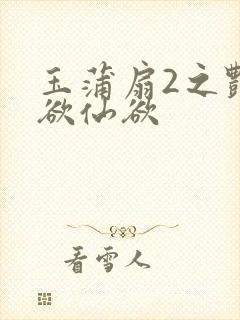 玉蒲扇2之艷
欲仙欲
看雪人